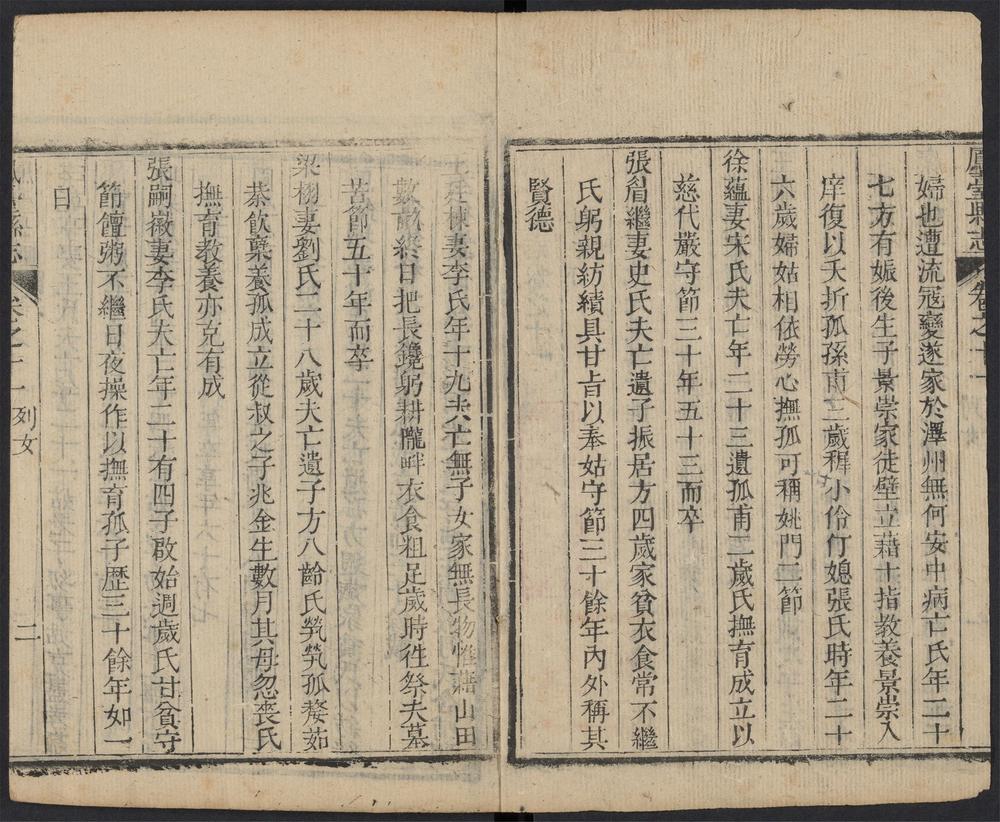 鳳臺縣志
卷之十一
婦也遭流寇變遂家於澤州無何安中病亡氏年二十
七方有娠後生子景崇家徒壁立藉十指教養景崇入
庠復以夭折孤孫甫三歲穉小伶仃媳張氏時年二十
六歲婦姑相依勞心撫孤可稱姚門二節
徐蘊妻宋氏夫亡年二十三遺孤甫二歲氏撫育成立以
慈代嚴守節三十年五十三而卒
張眉繼妻史氏夫亡遺子振居方四歲家貧衣食常不繼
氏躬親紡績具甘旨以奉姑守節三十餘年內外稱其
賢德
王廷棟妻李氏年十九夫亡無子女家無長物惟藉山田
數畝終日把長鑱躬耕隴畔衣食粗足歲時徃祭夫墓
苦節五十年而卒
梁栩妻劉氏二十八歲夫亡遺子方八齡氏煢煢孤嫠茹
荼飲蘖養孤成立從叔之子兆金生數月其母忽喪氏
撫育教養亦克有成
張嗣徽妻李氏夫亡年二十有四子啟始週歲氏甘貧守
節饘粥不繼日夜操作以撫育孤子歷三十餘年如一
日
鳳臺縣志
卷之十一 列女
二